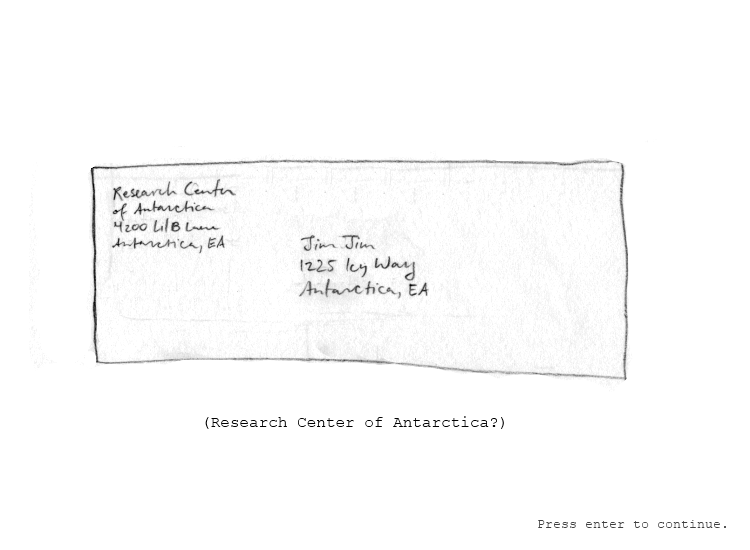 Research Center
of Antarctica
4200 Lane
Antarctica, EA
Jim Jim
1225 Icy Way
Antarctica, EA
(Research Center of Antarctica?)
Press enter to continue.